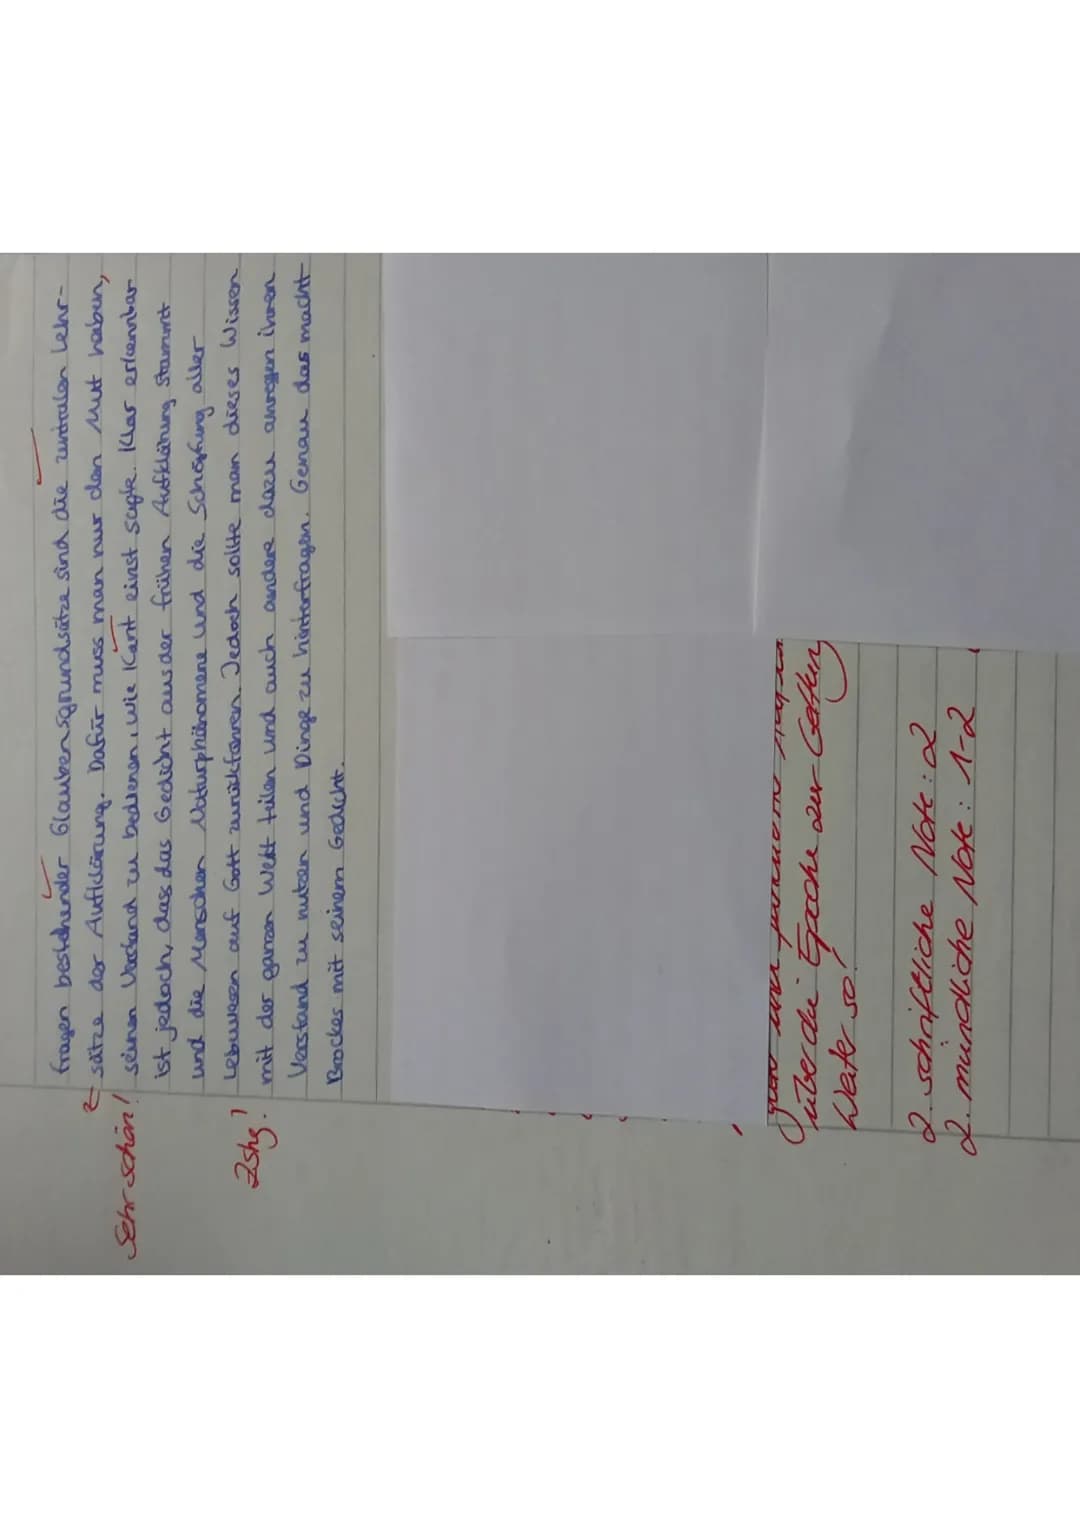 fragen bestehender Glaubensgrundsätze sind die zentralen Lehr-
sätze der Aufklärung. Dafür muss man nur den Mut haben,
Sehr schön! seinen Verstand zu bedienen, wie Kant einst sagte. Klar erkennbar
ist jedoch, dass das Gedicht aus der frühen Aufklärung stammt
und die Menschen Naturphänomene und die Schöpfung aller
Lebewesen auf Gott zurückführen. Jedoch sollte man dieses Wissen
Zshg.! mit der ganzen Welt teilen und auch andere dazu anregen ihren
Verstand zu nutzen und Dinge zu hinterfragen. Genau das macht
Brockes mit seinem Gedicht.
über die Epoche zur Geltung
Weiter so!
2. schriftliche Note: 2
2. mündliche Note: 1-2